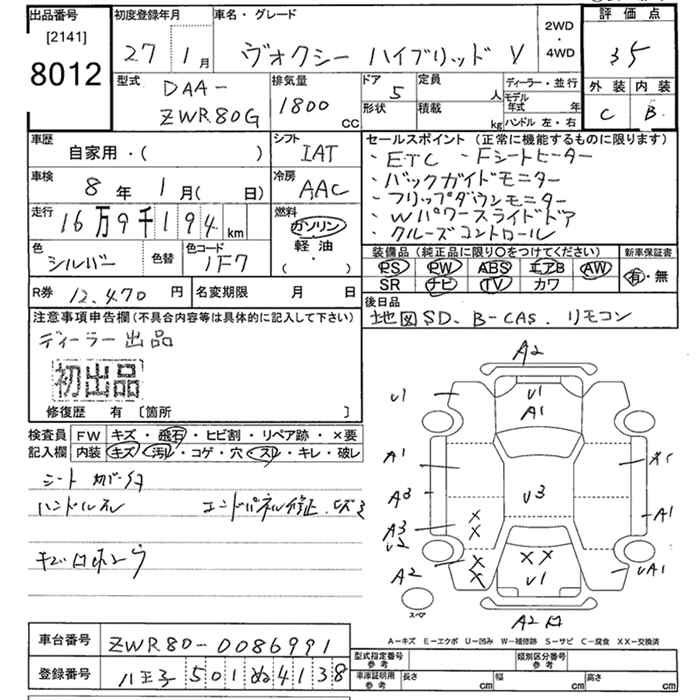 出品番号
[2141]
8012
初度登録年月
27 1月
車名・グレード
ヴォクシー ハイブリッド V
2WD
・
4WD
評価点
35
外装 内装
C B
型式
DAA-
ZWR80G
排気量
1800 CC
ドア
5
定員
人
形状
積載
kg
ディーラー・並行
モデル年式 年
ハンドル 左・右
車歴
自家用・( )
シフト
IAT
車検
8年 1月( 日)
冷房
AAC
走行
16万9千194km
燃料
ガソリン
軽油
( ・ )
色
シルバー
色替
色コード
1F7
R券 12,470 円
名変期限 月 日
セールスポイント (正常に機能するものに限ります)
・ETC ・Fシートヒーター
・バックガイドモニター
・フリップダウンモニター
・Wパワースライドドア
・クルーズコントロール
装備品 (純正品に限り〇をつけてください)
PS PW ABS エアB AW
SR ナビ TV カワ
新車保証書
有・無
後日品
地図SD、B-CAS、リモコン
注意事項申告欄(不具合内容等は具体的に記入して下さい)
ディーラー出品
初出品
修復歴 有 [箇所 ]
検査員
記入欄
FW キズ・飛石・ヒビ割・リペア跡・×要
内装 キズ・汚れ・コゲ・穴・スレ・キレ・破レ
ハンドルスレ エンドパネル修正
A2
U1
U1
A1
A1
A3
A3
U2
A2
U3
A1
× ×
U1
UA1
×
×
×
×
A2
スペア
A-キズ E-エクボ U-凹み W-補修跡 S-サビ C-腐食 XX-交換済
車台番号 ZWR80-0086991
登録番号 八王子 501 ぬ 4138
型式指定番号
参考
類別区分番号
参考
車庫証明用
参考
長さ cm 幅 cm 高さ cm